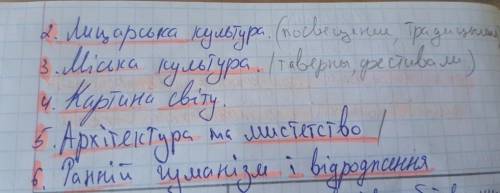 2. Лицарська культура. (посвещении, традиции)
3. Міська культура. (таверны, фестивали)
4. Картина світу.
5. Архітектура та мистетство
6. Ранній гуманізм і відродження